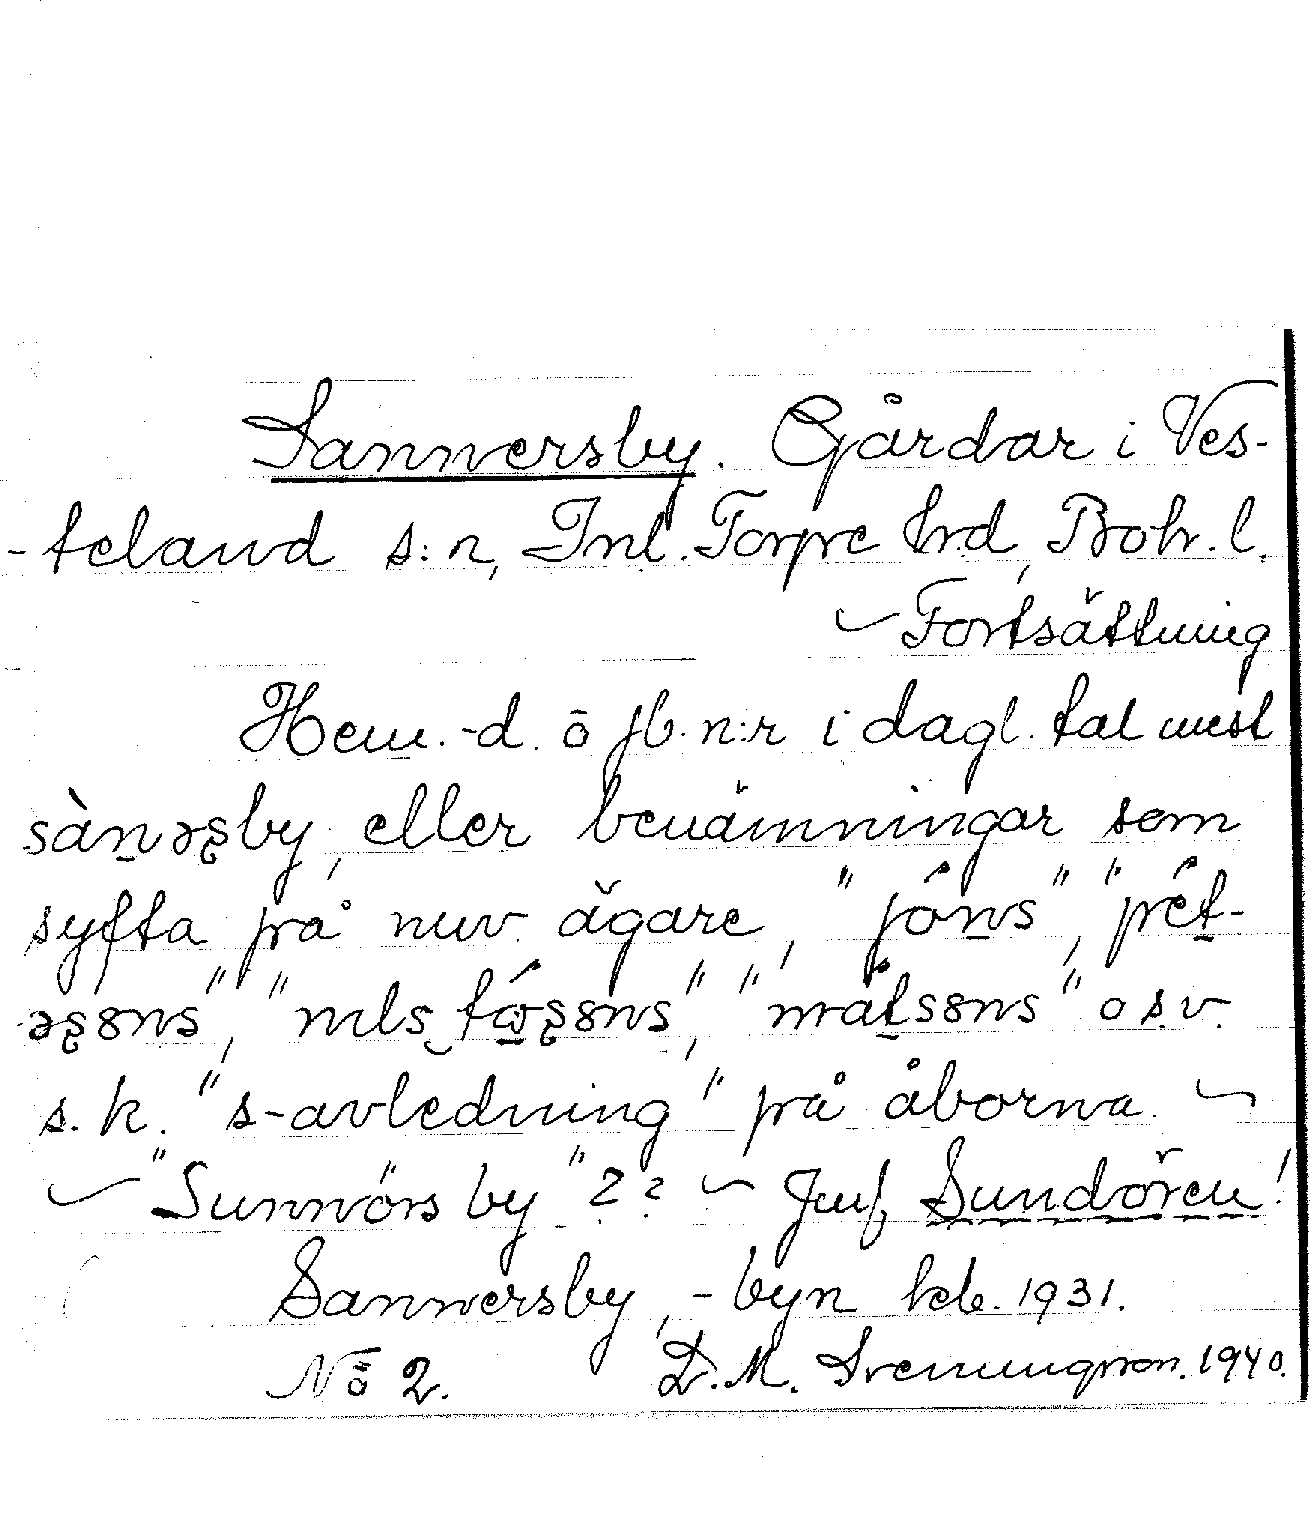 Sannersby. Gårdar i Ves-
-teland s:n, Inl. Torpe hrd, Boh. l.
~ Fortsättning
Hem.-d. ö jb. n:r i dagl. tal mest
sànəʂby, eller benämningar som
syfta på nuv. ägare, "jóns", "pét-
əʂsns", "nils
"mátsɞns" o.s.v.
s.k. "s-avledning" på åborna. ~
~ "Sunnörs by"?? ~ Jmf. Sundören!
Sannersby, -byn kb. 1931.
No 2. D. M.
1940.